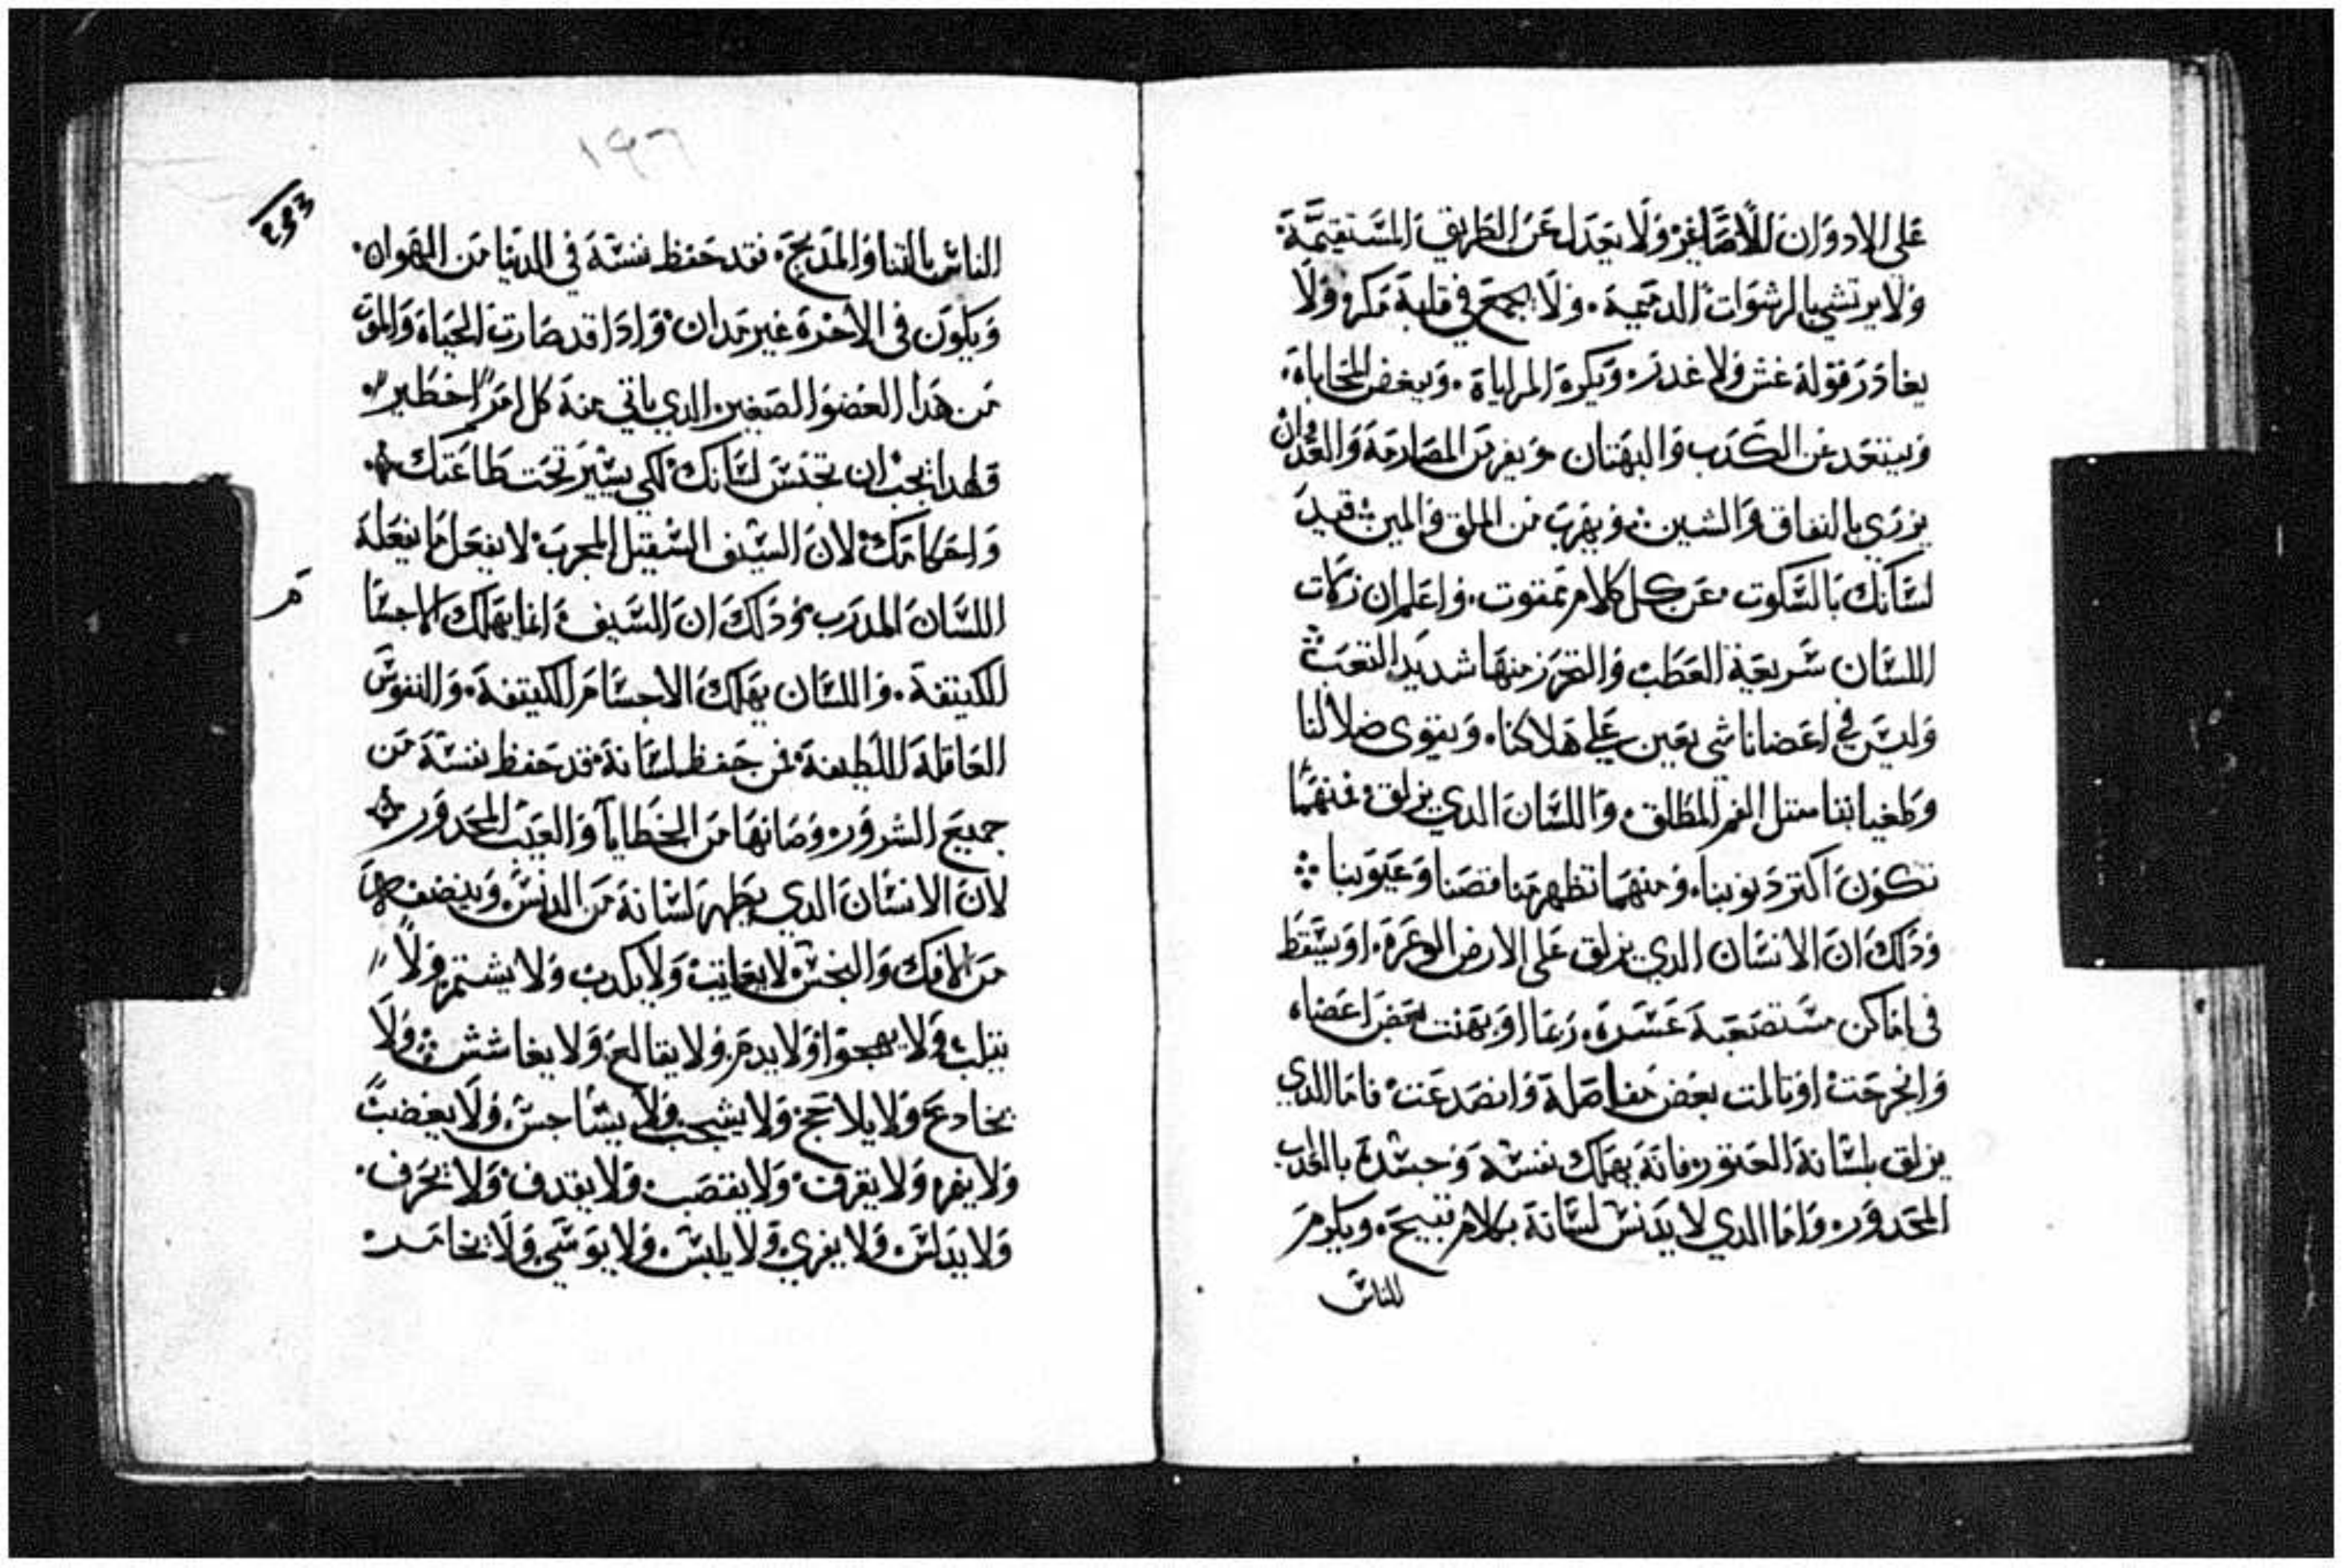 على الادوان للاصاغر ولا يعدل عن الطريق المستقيمة.
ولا يرتشي بالرشوات الدميمة. ولا يجمع في قلبه مكر ولا
يغادر قوله غش ولا غدر. ويكره المراياة. ويبغض المحاباة.
ويبتعد عن الكدب والبهتان ويفر من المصادمة والعدوان
يزري بالنفاق والشين. ويهرب من الملق والمين. قيد
لسانك بالسكوت عن كل كلام ممقوت. واعلم ان زلات
اللسان سريعة العطب والتحرز منها شديد التعب
وليس في اعضانا شي يعين علي هلاكنا. ويقوى ضلالنا
وطغياننا متل الفم المطلق. واللسان الدي يزلق. فمنهما
تكون اكتر دنوبنا. ومنهما تظهر منا نقصنا وعيوبنا
ودلك ان الانسان الدي يزلق على الارض الوعرة. او يسقط
في اماكن مستصعبة عسرة. ربما اوتهنت بعض اعضاه
وانجرحت او تالمت بعض مفاصله وانصدعت. فاما الدي
يزلق بلسانه العتور. فانه يهلك نفسه وجسده بالكدب
المحدور. واما الدي لا يدنس لسانه بكلام قبيح. ويكرم
للناس
١٩٦
293
الناس بالتنا والمديح. فقد حفظ نفسه في الدنيا من الهوان.
ويكون في الاخرة غير مدان. وادا قد صارت الحياة والموت
من هدا العضو الصغير. الدي ياتي منه كل امر خطير.
فلهدا يجب ان تحبس لسانك لكي يسير تحت طاعتك
واحكامك لان السيف السقيل المجرب. لا يفعل ما يفعله
اللسان المدرب. ودلك ان السيف انما يهلك الاجسا
م
الكتيفة. واللسان يهلك الاجسام الكتيفة. والنفوس
العاقلة اللطيفة. فمن حفظ لسانه قد حفظ نفسه من
جميع الشرور. وصانها من الخطايا والعيب المحدور
لان الانسان الدي يطهر لسانه من الدنس. وينضف
من الافك والبخس. لا يعايب ولا يكدب ولا يشتم ولا
يتلب ولا يهجوا ولا يدم ولا يقالع ولا يغاشش ولا
يخادع ولا يلاجج ولا يشجب ولا يساجس ولا يغضب
ولا يفر ولا يقرف ولا يغتصب ولا يقدف ولا يحرف.
ولا يدلس ولا يغري ولا يلبس ولا يوشي ولا يخا